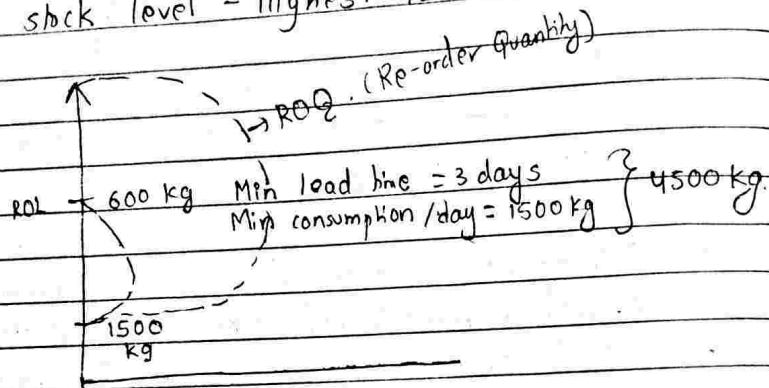 stock level - Highest
→ ROQ. (Re-order Quantity)
ROL 600 kg Min lead time = 3 days
Min consumption /day = 1500 kg } 4500 kg.
1500
kg